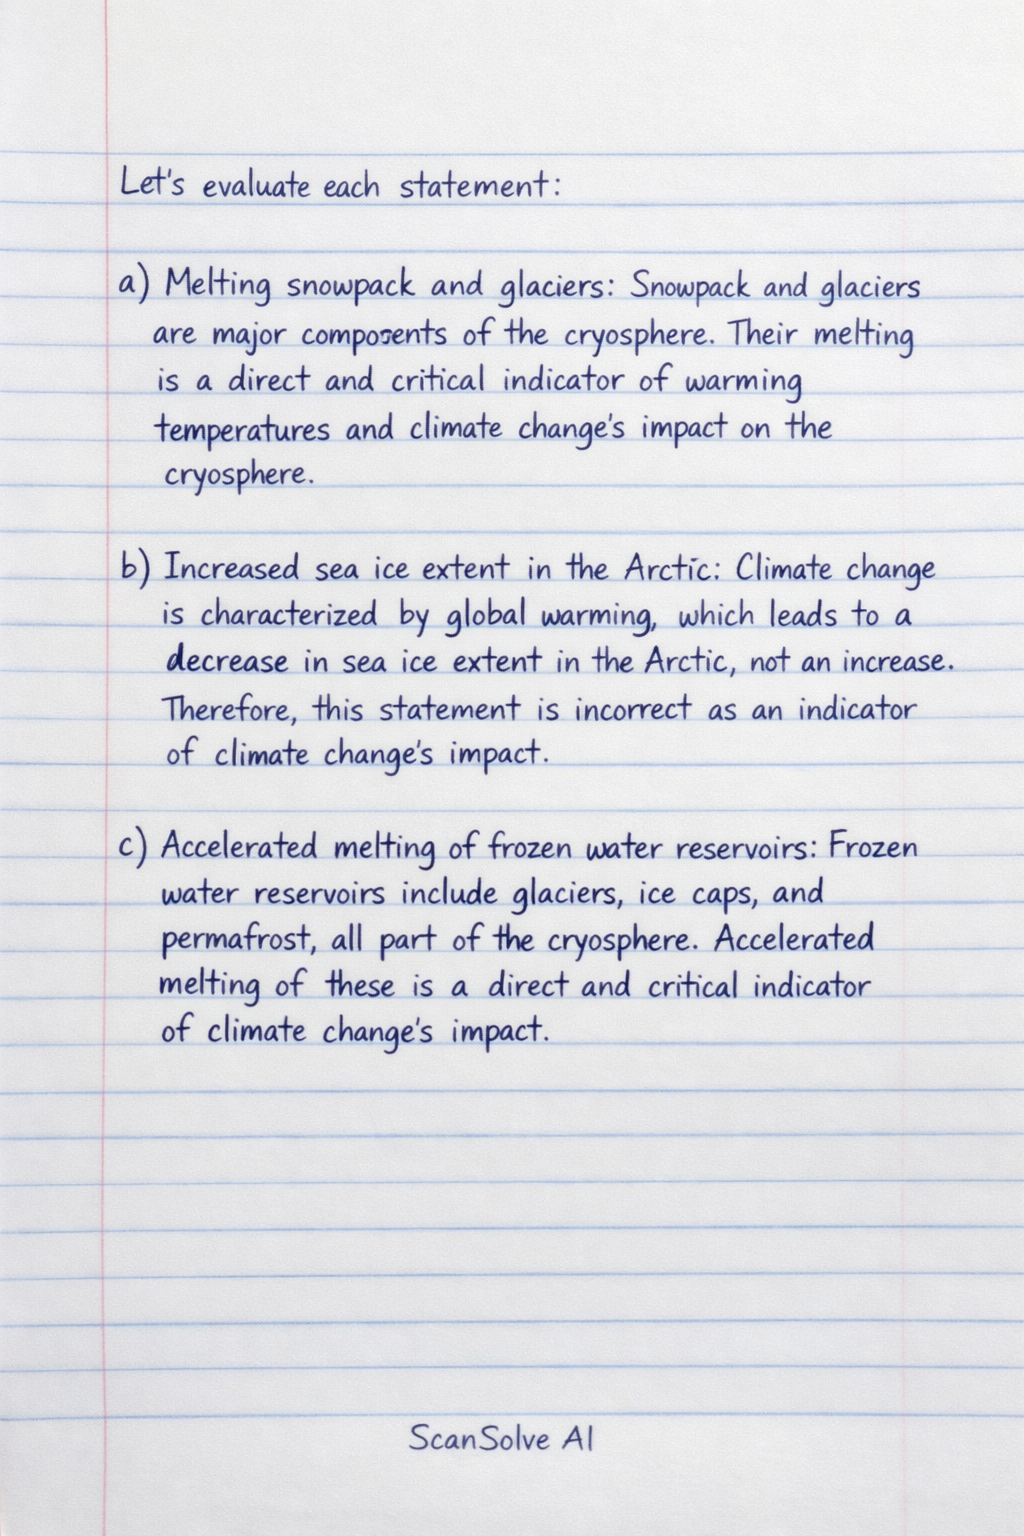 Let's evaluate each statement:
a) Melting snowpack and glaciers: Snowpack and glaciers
are major components of the cryosphere. Their melting
is a direct and critical indicator of warming
temperatures and climate change's impact on the
cryosphere.
b) Increased sea ice extent in the Arctic: Climate change
is characterized by global warming, which leads to a
decrease in sea ice extent in the Arctic, not an increase.
Therefore, this statement is incorrect as an indicator
of climate change's impact.
c) Accelerated melting of frozen water reservoirs: Frozen
water reservoirs include glaciers, ice caps, and
permafrost, all part of the cryosphere. Accelerated
melting of these is a direct and critical indicator
of climate change's impact.
ScanSolve AI